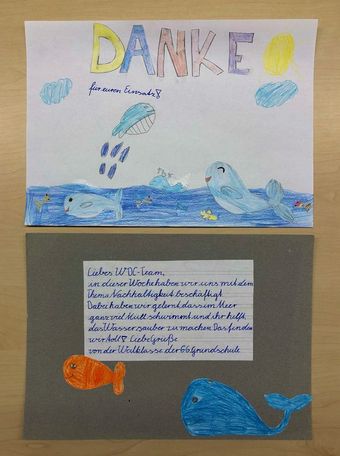 DANKE
für euren Einsatz!
Liebes WDC-Team,
in dieser Woche haben wir uns mit dem
Thema Nachhaltigkeit beschäftigt.
Dabei haben wir gelernt, dass im Meer
ganz viel Müll schwimmt und ihr helft,
das Wasser sauber zu machen. Das finden
wir toll! Liebe Grüße
von der Walklasse der GGGrundschule